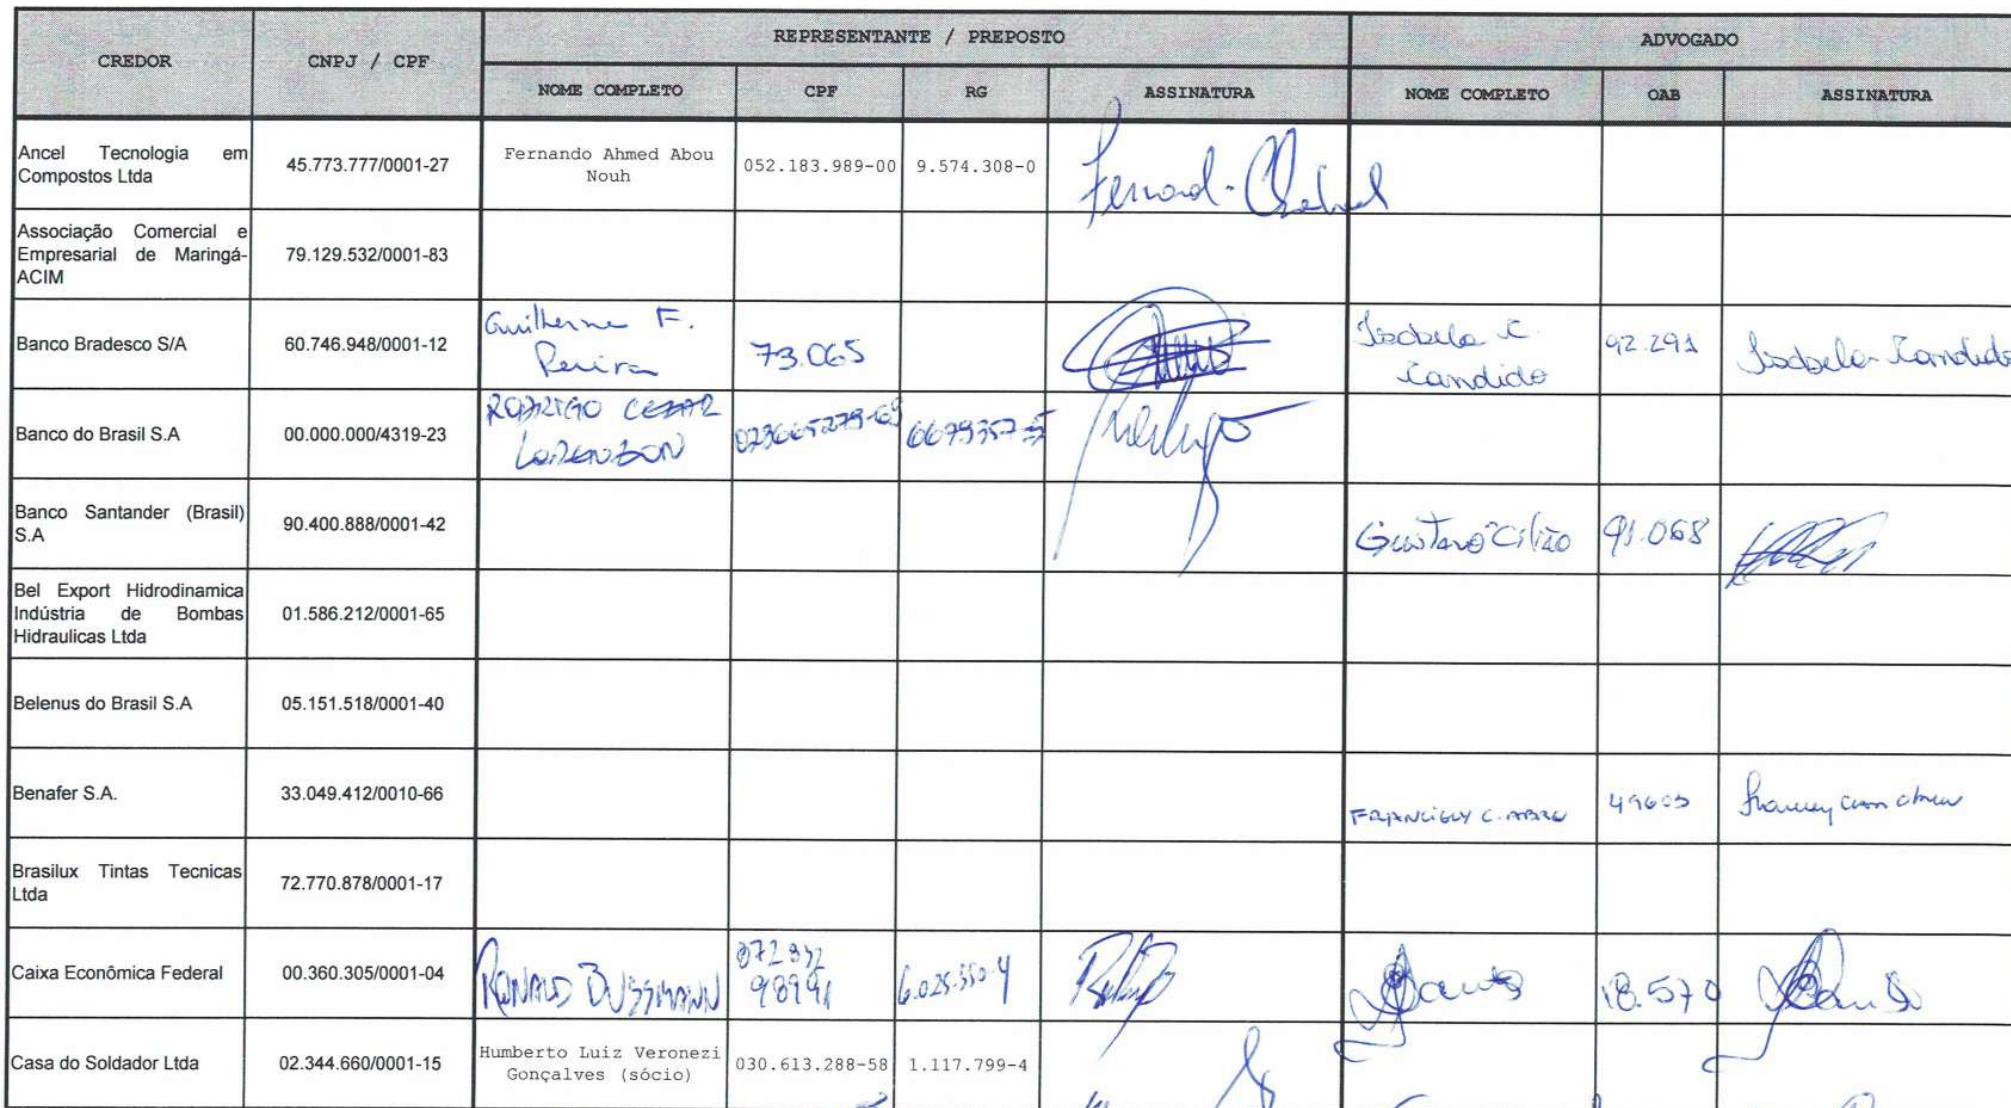 REPRESENTANTE / PREPOSTO ADVOGADO
CREDOR CNPJ / CPF
NOME COMPLETO CPF RG ASSINATURA NOME COMPLETO OAB ASSINATURA
Ancel Tecnologia em
Compostos Ltda
45.773.777/0001-27
Fernando Ahmed Abou
Nouh
052.183.989-00 9.574.308-0
Associação Comercial e
Empresarial de Maringá-
ACIM
79.129.532/0001-83
Banco Bradesco S/A 60.746.948/0001-12
Guilherme F.
Pereira
73.065
Isabela C.
Candido
92.291
Isabela Candido
Banco do Brasil S.A 00.000.000/4319-23
RODRIGO CEZAR
LORENZON
Rodrigo
Banco Santander (Brasil)
S.A
90.400.888/0001-42
Gustavo Cilião 91.068
Bel Export Hidrodinamica
Indústria de Bombas
Hidraulicas Ltda
01.586.212/0001-65
Belenus do Brasil S.A 05.151.518/0001-40
Benafer S.A. 33.049.412/0010-66
Brasilux Tintas Tecnicas
Ltda
72.770.878/0001-17
Caixa Econômica Federal 00.360.305/0001-04
RONALD BUSSMANN
6.025.550-4
18.570
Casa do Soldador Ltda 02.344.660/0001-15
Humberto Luiz Veronezi
Gonçalves (sócio)
030.613.288-58 1.117.799-4